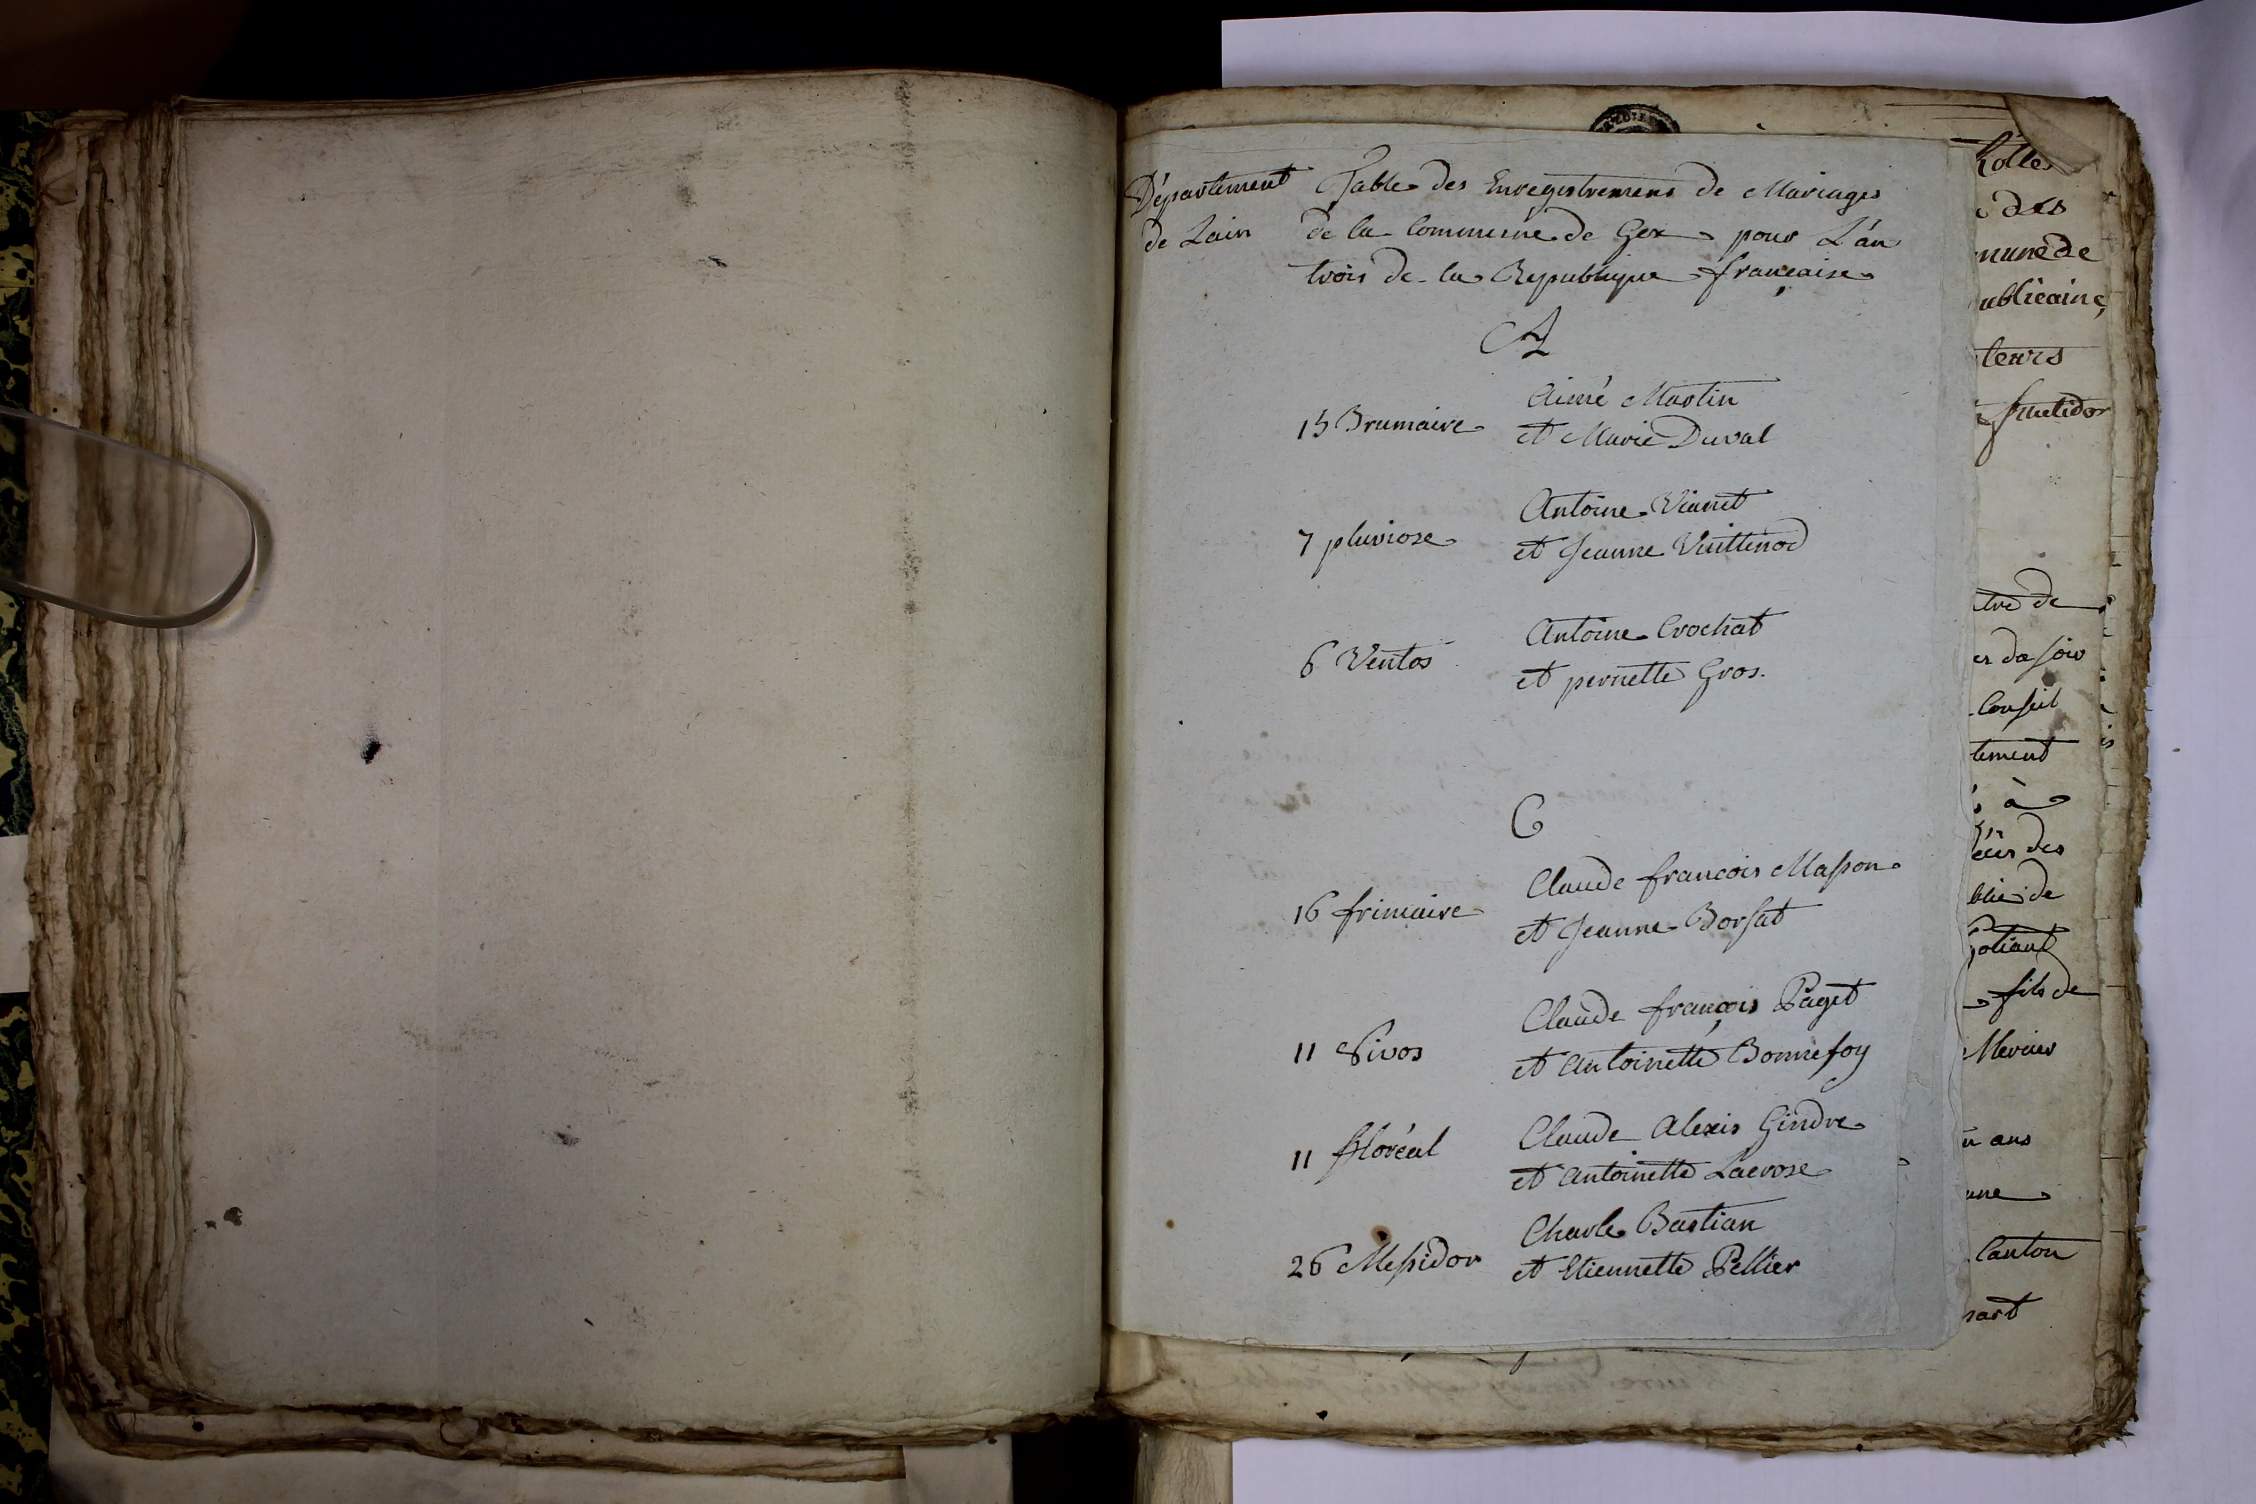 Département
de Lain
Table des Enregistremens de Mariages
de la Commune de Gex pour L'an
trois de la Republique française
A
15 Brumaire
Aimé Martin
et Marie Duval
7 pluviose
Antoine Vianet
et Jeanne Vuittenod
6 Ventos
Antoine Crochat
et pernette Gros.
C
16 frimaire
Claude francois Masson
et Jeanne Borsat
11 Nivos
Claude françois Paget
et Antoinette Bonnefoy
11 floréal
Claude Alexis Gindre
et Antoinette Lacrose
26 Messidor
Charle Bastian
et Etiennette Pellier
des
mune de
ublicaine,
fructidor
tre de
Conseil
tement
à
des
de
fils de
Mercier
ans
une
Canton
part